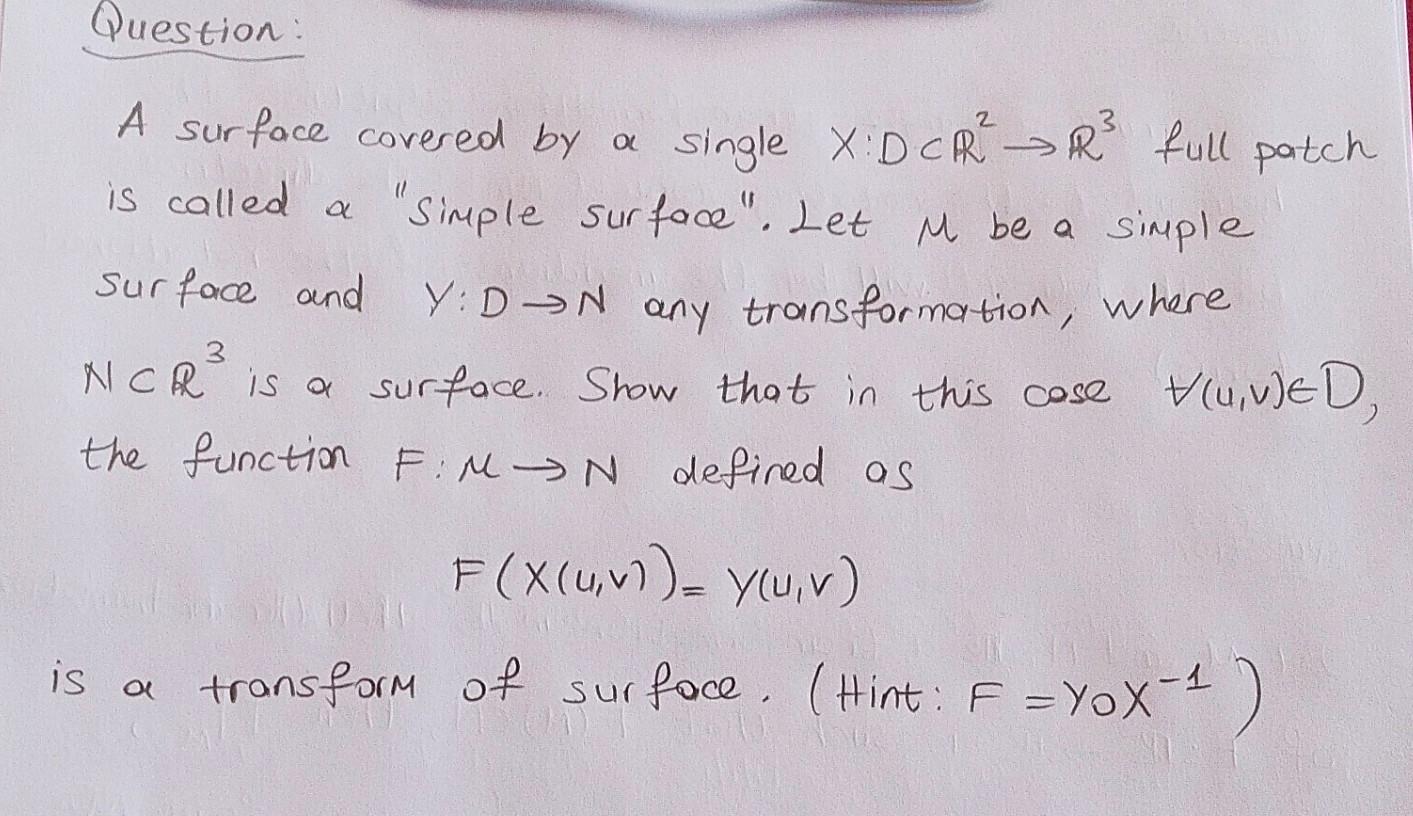 Question:
A surface covered by a single X:D⊂ℝ² → ℝ³ full patch
is called a "simple surface". Let M be a simple
surface and Y:D→N any transformation, where
N⊂ℝ³ is a surface. Show that in this case ∀(u,v)∈D,
the function F:M→N defined as
F(X(u,v))= Y(u,v)
is a transform of surface. (Hint: F =YoX⁻¹)